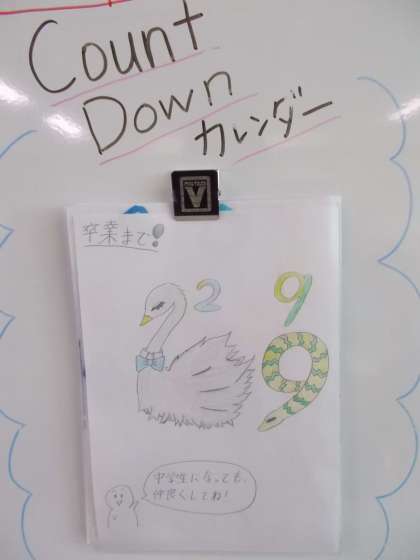 Count
Down
カレンダー
V
卒業まで!
2 9
9
中学生になっても、
仲良くしてね!